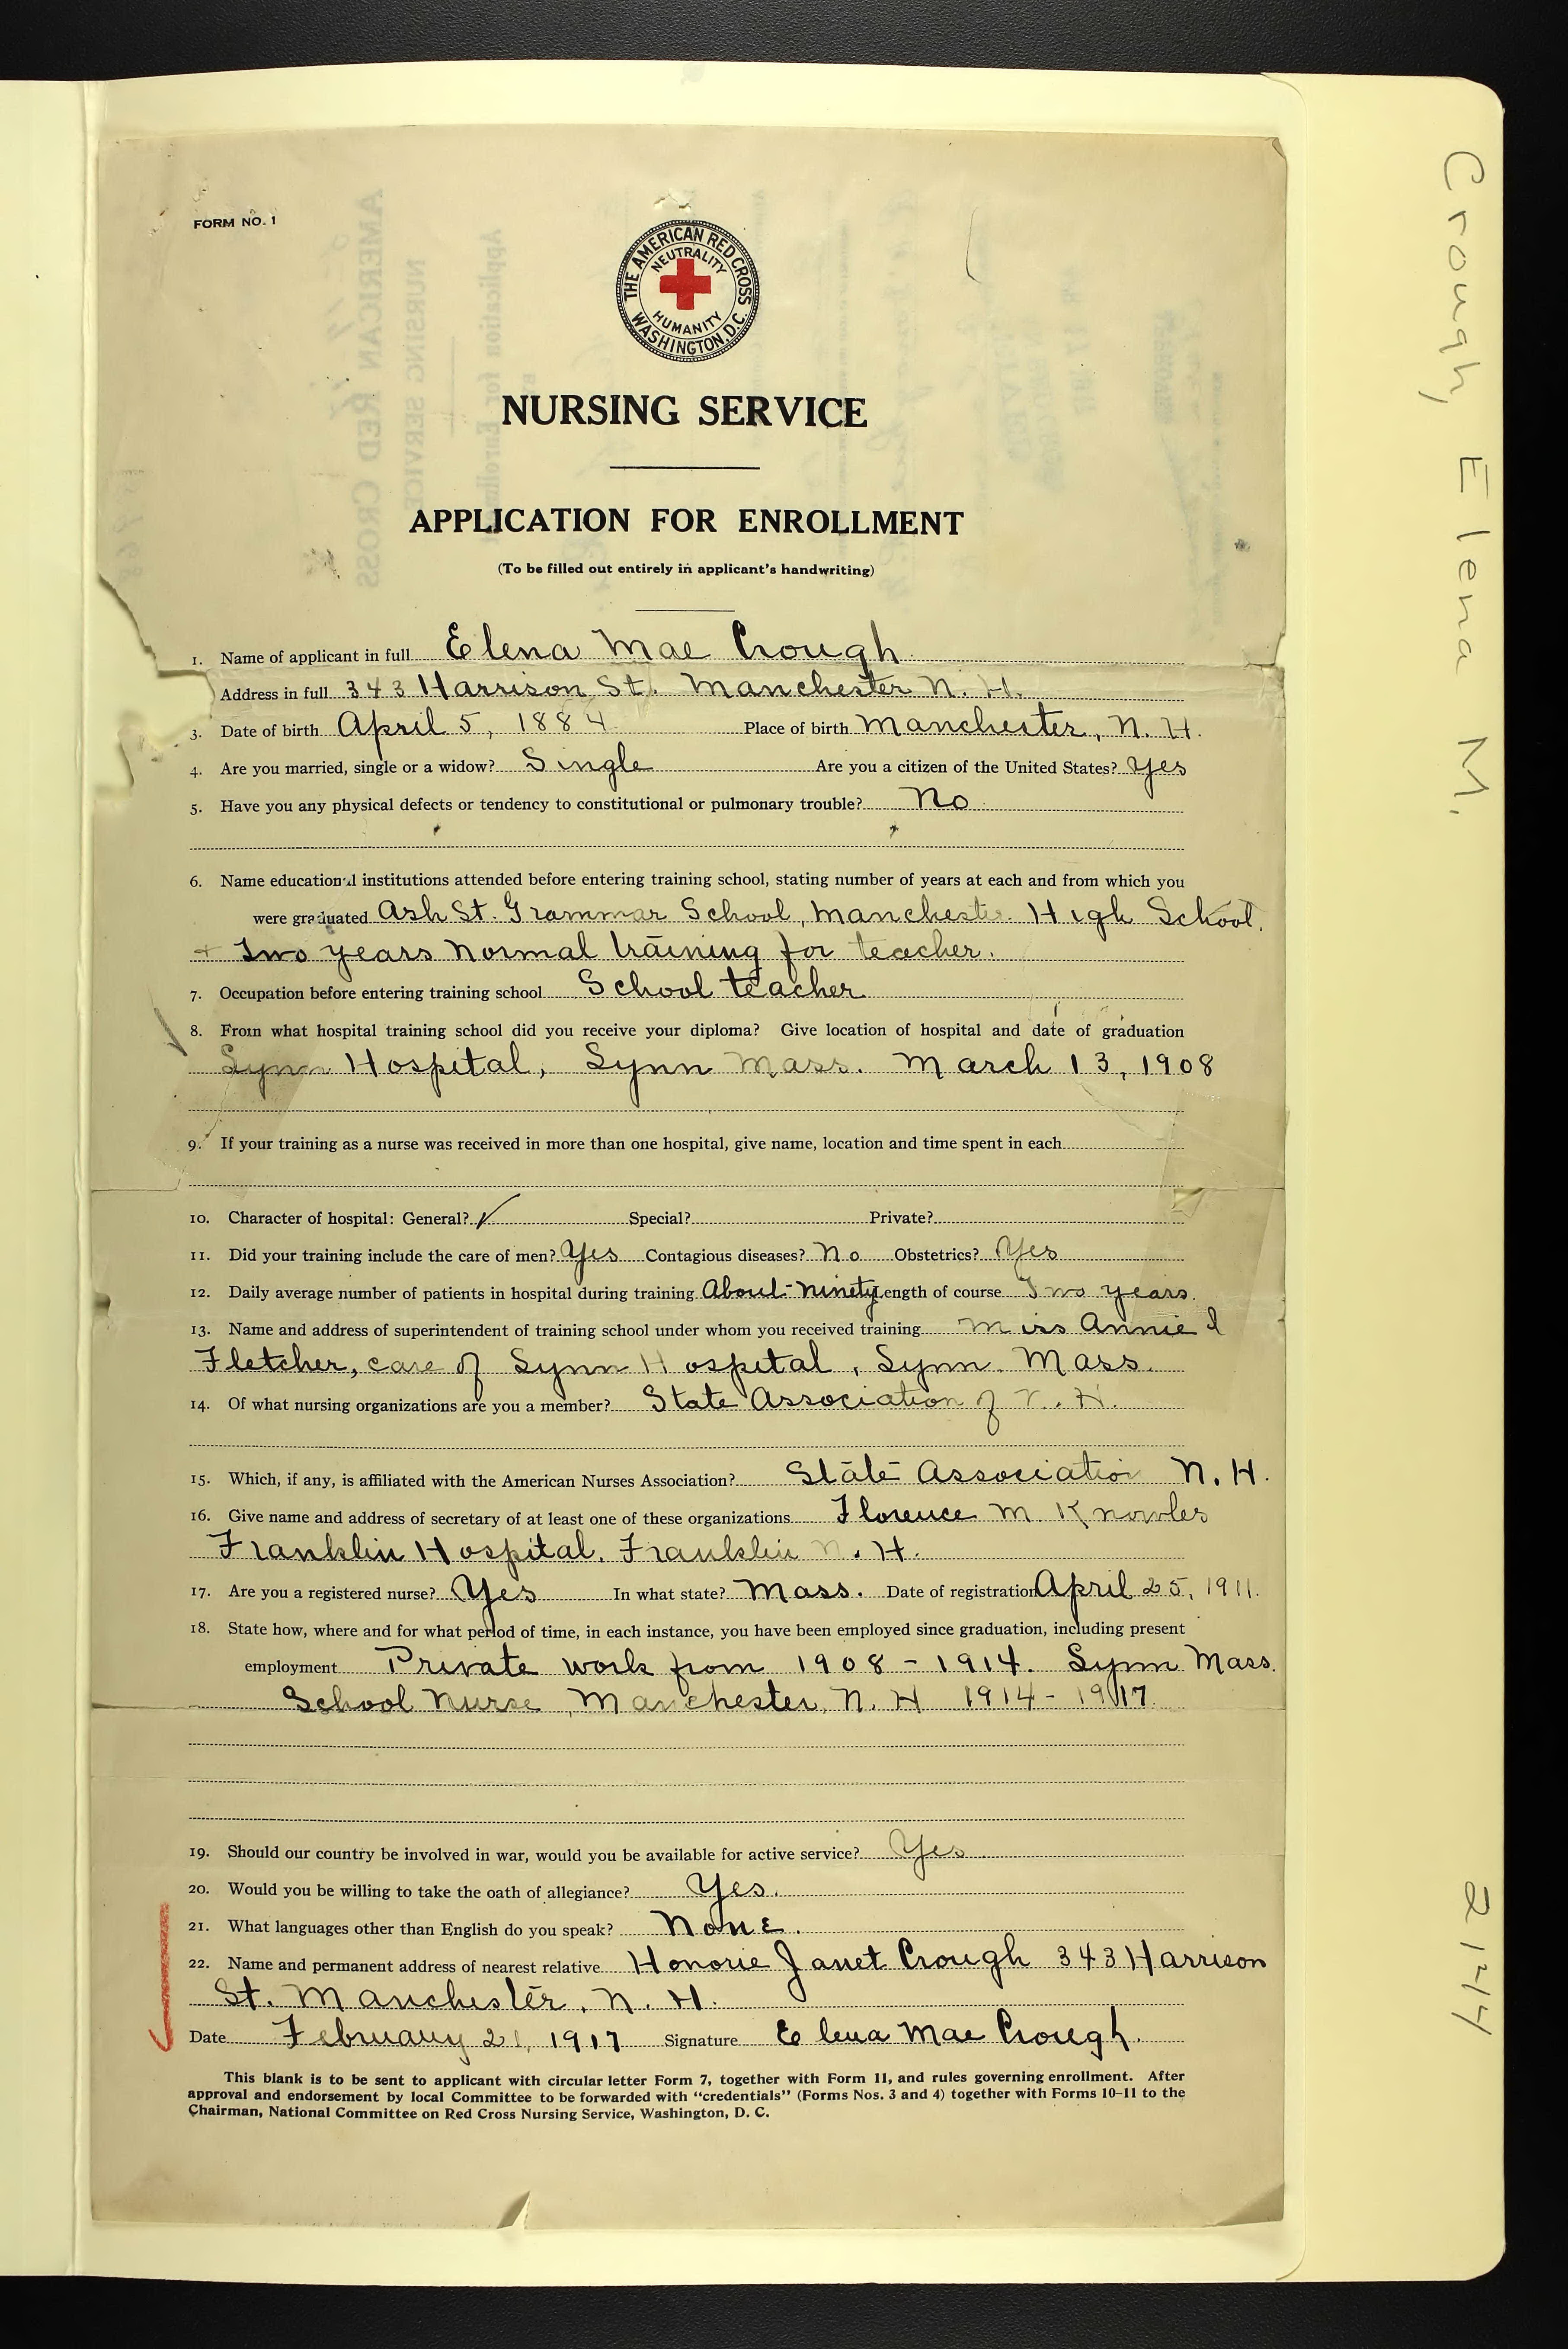 Crough, Elena M.
2144
FORM NO. 1
THE AMERICAN RED CROSS
NEUTRALITY
HUMANITY
WASHINGTON, D.C.
NURSING SERVICE
APPLICATION FOR ENROLLMENT
(To be filled out entirely in applicant's handwriting)
1. Name of applicant in full Elena Mae Crough
Address in full 343 Harrison St. Manchester N. H.
3. Date of birth April 5, 1884 Place of birth Manchester, N. H.
4. Are you married, single or a widow? Single Are you a citizen of the United States? Yes
5. Have you any physical defects or tendency to constitutional or pulmonary trouble? No
6. Name educational institutions attended before entering training school, stating number of years at each and from which you
were graduated Ash St. Grammar School, Manchester High School.
+ Two years Normal training for teacher.
7. Occupation before entering training school School teacher
8. From what hospital training school did you receive your diploma? Give location of hospital and date of graduation
Lynn Hospital, Lynn Mass. March 13, 1908
9. If your training as a nurse was received in more than one hospital, give name, location and time spent in each
10. Character of hospital: General? ✓ Special? Private?
11. Did your training include the care of men? Yes Contagious diseases? No Obstetrics? Yes
12. Daily average number of patients in hospital during training About ninety Length of course Two years.
13. Name and address of superintendent of training school under whom you received training Miss Annie
Fletcher, care of Lynn Hospital, Lynn. Mass.
14. Of what nursing organizations are you a member? State Association of N. H.
15. Which, if any, is affiliated with the American Nurses Association? State Association N. H.
16. Give name and address of secretary of at least one of these organizations Florence M. Knowles
Franklin Hospital. Franklin N. H.
17. Are you a registered nurse? Yes In what state? Mass. Date of registration April 25, 1911.
18. State how, where and for what period of time, in each instance, you have been employed since graduation, including present
employment Private work from 1908 - 1914. Lynn Mass.
School Nurse, Manchester, N. H 1914 - 1917.
19. Should our country be involved in war, would you be available for active service? Yes
20. Would you be willing to take the oath of allegiance? Yes.
21. What languages other than English do you speak? None.
22. Name and permanent address of nearest relative Honorie Janet Crough 343 Harrison
St. Manchester. N. H.
Date February 21, 1917 Signature Elena Mae Crough.
This blank is to be sent to applicant with circular letter Form 7, together with Form 11, and rules governing enrollment. After
approval and endorsement by local Committee to be forwarded with "credentials" (Forms Nos. 3 and 4) together with Forms 10-11 to the
Chairman, National Committee on Red Cross Nursing Service, Washington, D. C.